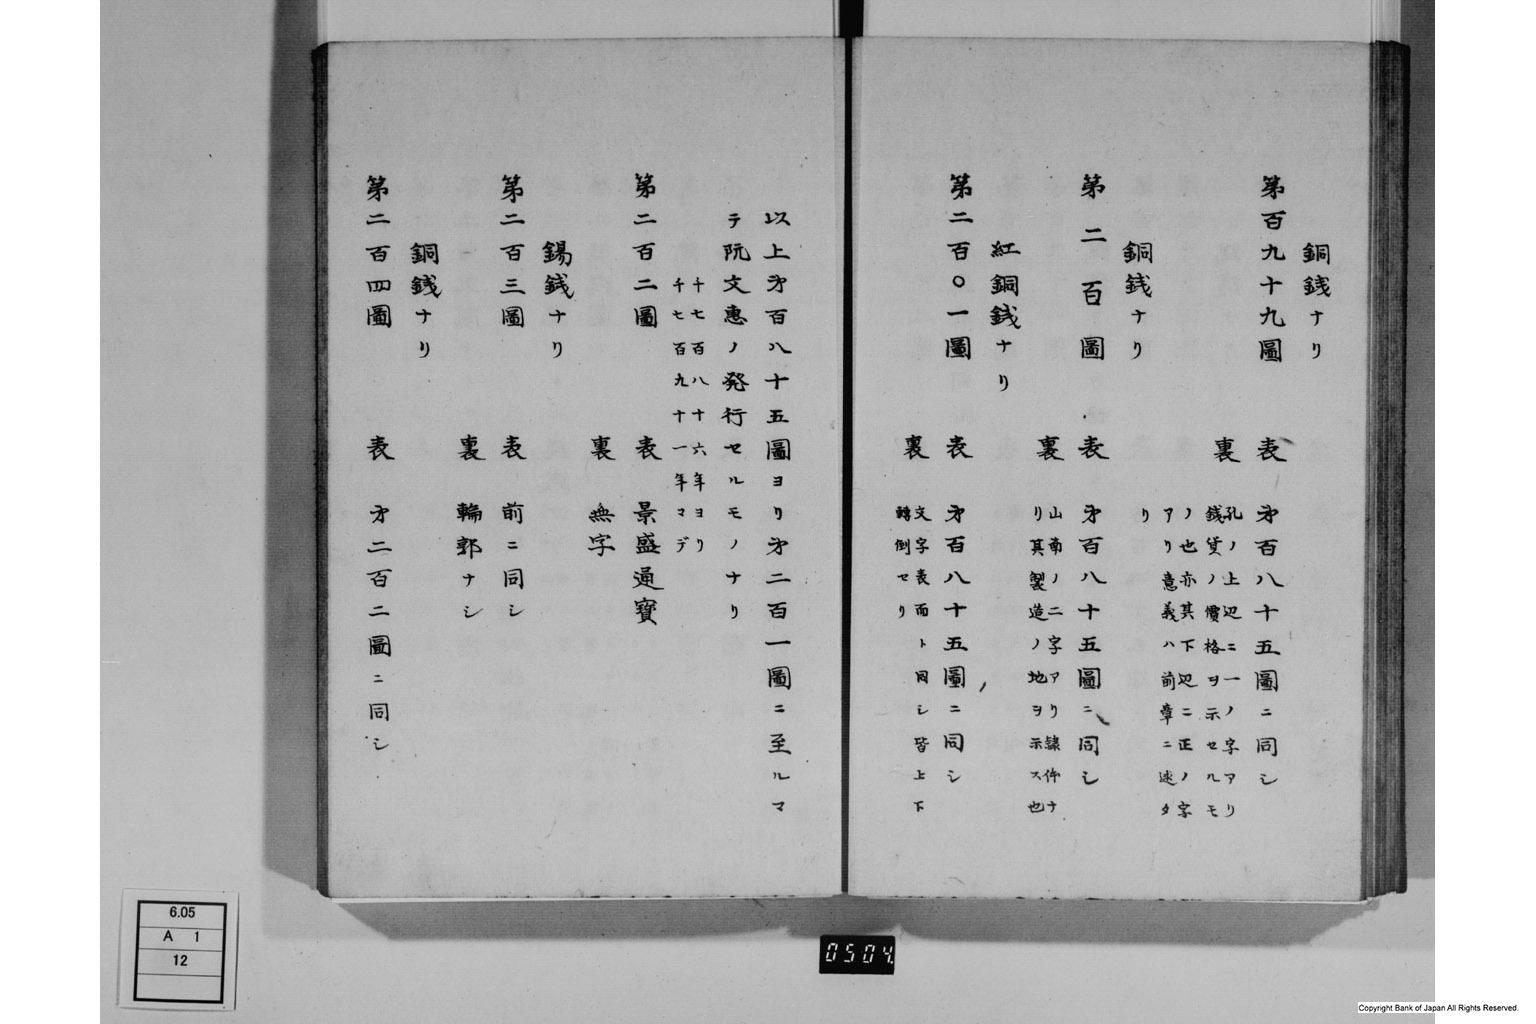 銅銭ナリ
第百九十九圖
表 㐧百八十五圖ニ同シ
裏 孔ノ上辺ニ一ノ字アリ
銭貨ノ價格ヲ示セルモ
ノ也亦其下辺ニ正ノ字
アリ意義ハ前章ニ述タ
リ
銅銭ナリ
第二百圖
表 㐧百八十五圖ニ同シ
裏 山南ノ二字アリ隷作ナ
リ其製造ノ地ヲ示ス也
紅銅銭ナリ
第二百〇一圖
表 㐧百八十五圖ニ同シ
裏 文字表面ト同シ皆上下
轉倒セリ
以上㐧百八十五圖ヨリ㐧二百一圖ニ至ルマ
テ阮文惠ノ発行セルモノナリ
千七百八十六年ヨリ
千七百九十一年マデ
第二百二圖
表 景盛通寳
裏 無字
錫銭ナリ
第二百三圖
表 前ニ同シ
裏 輪郭ナシ
銅銭ナリ
第二百四圖
表 㐧二百二圖ニ同シ
6.05
A 1
12
0504
Copyright Bank of Japan All Rights Reserved.